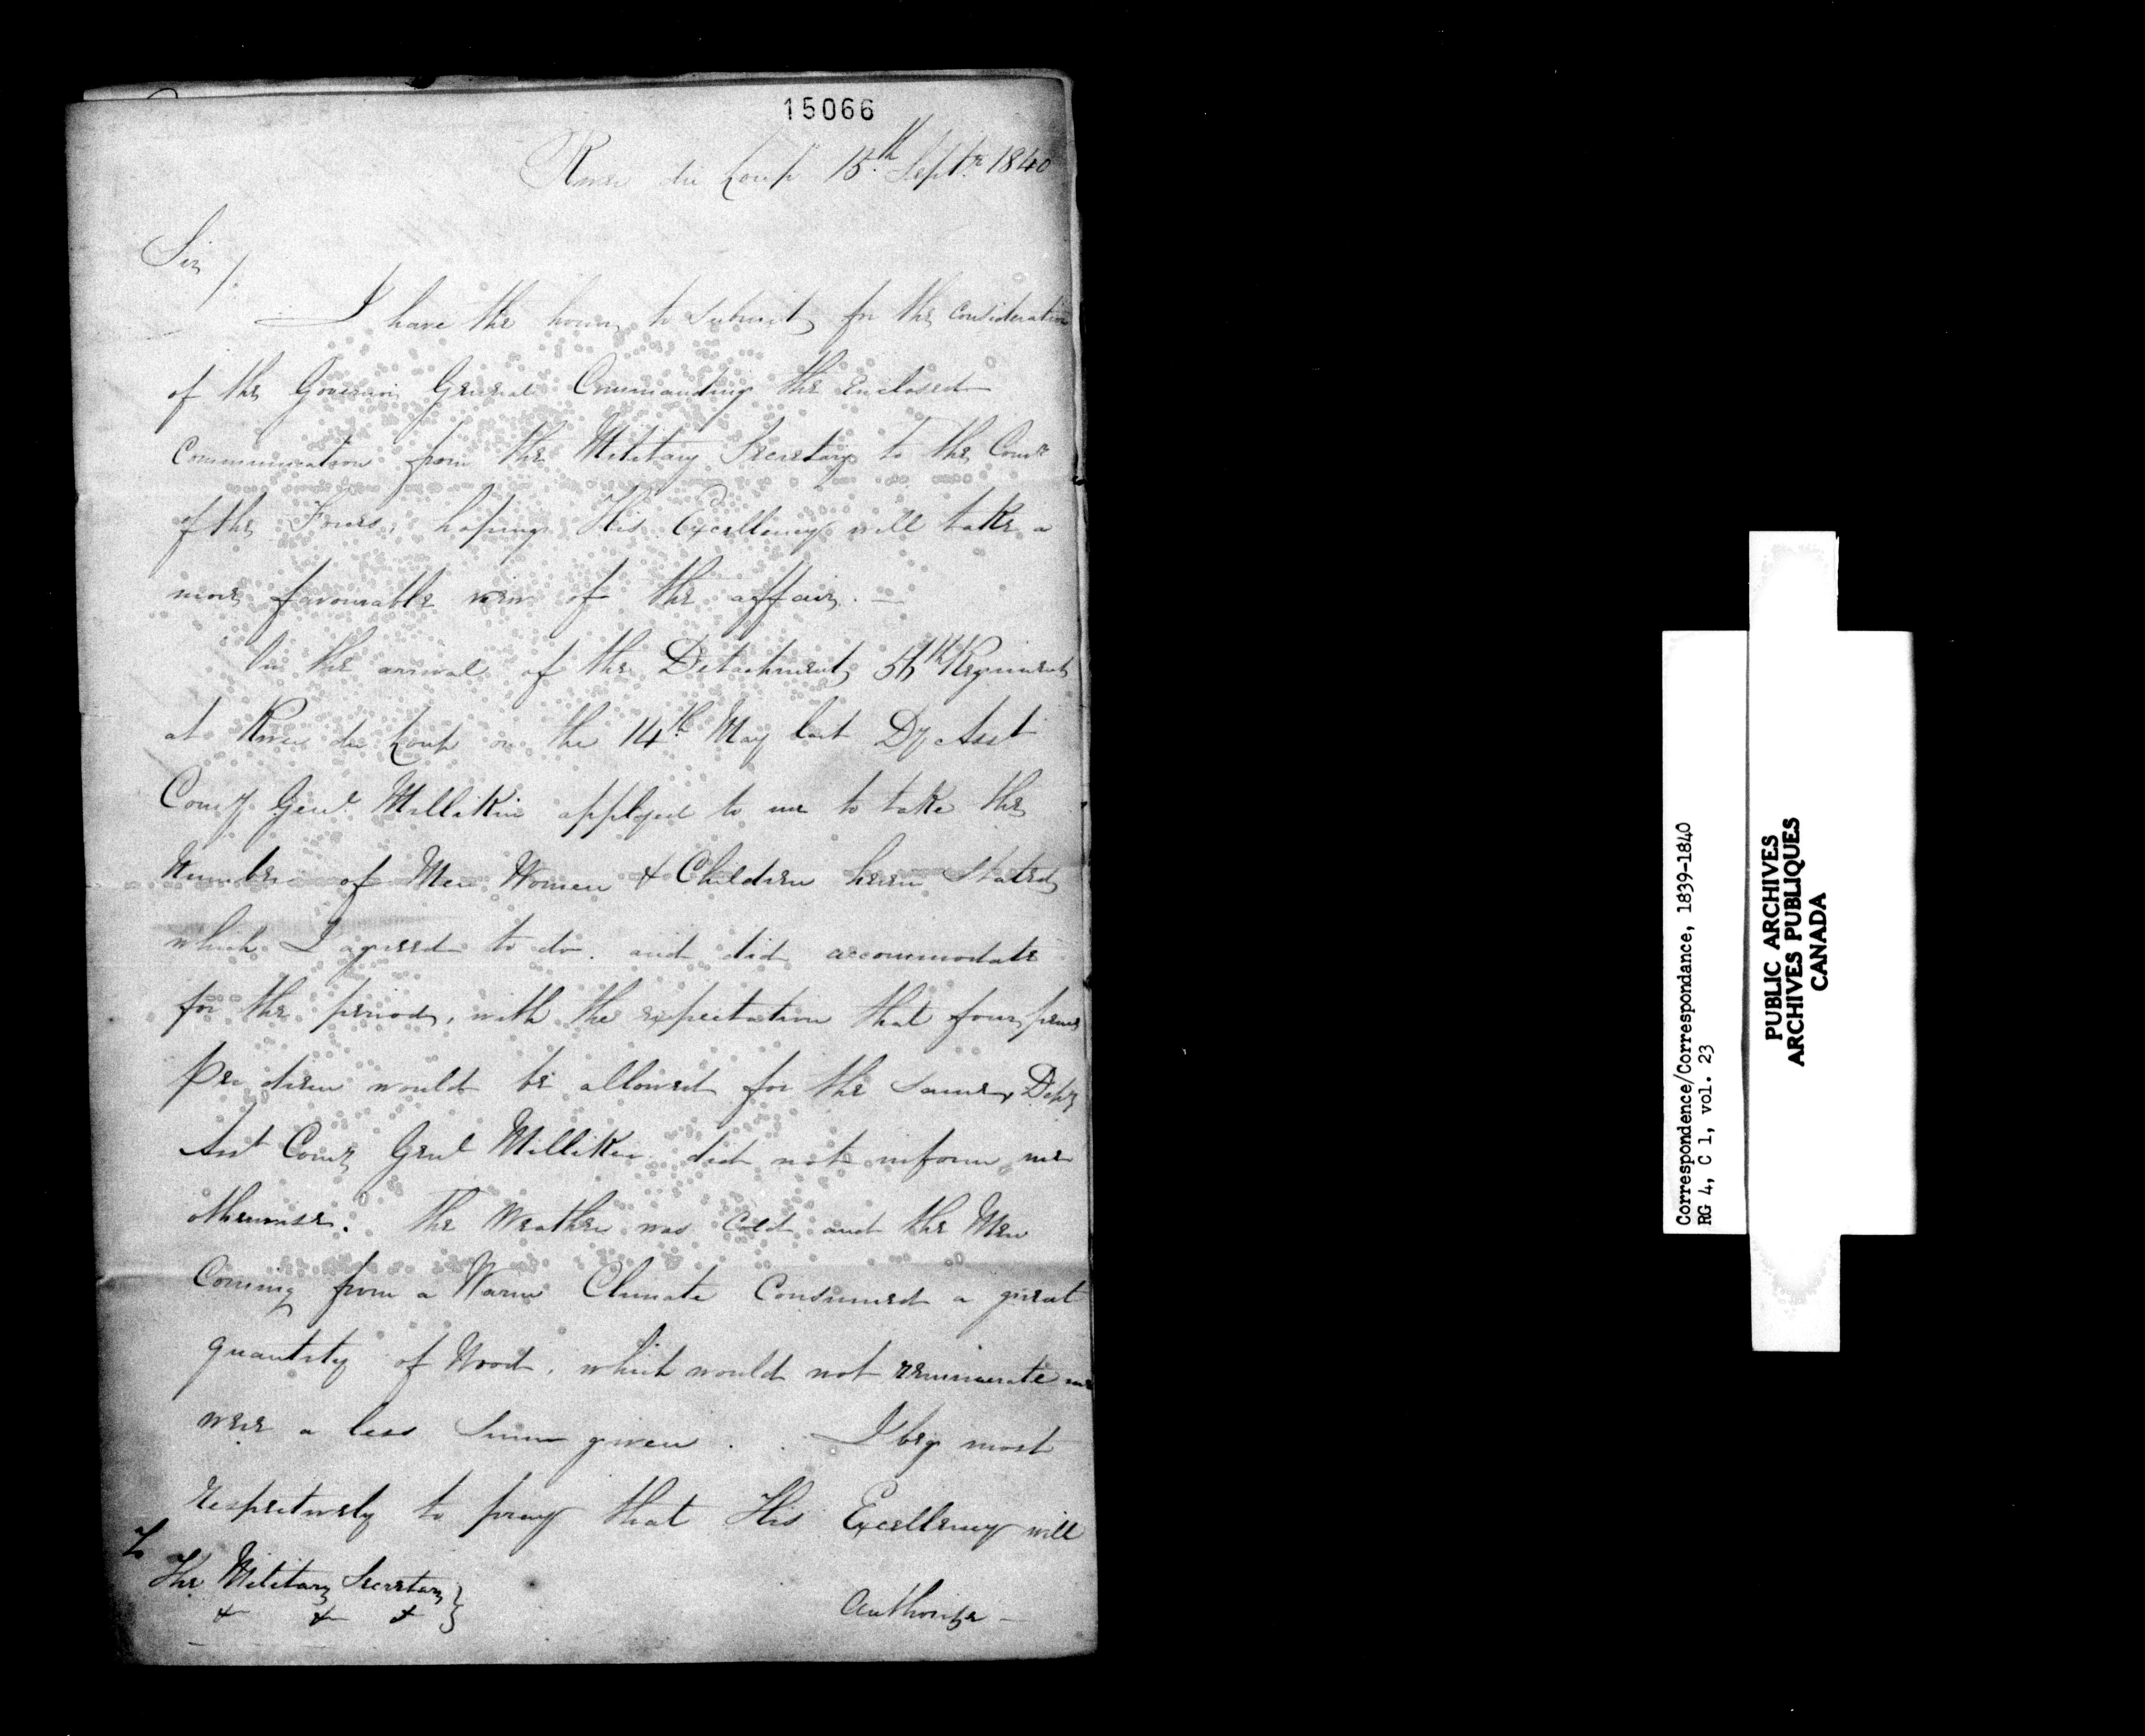 15066
River du Loup 15th Septr 1840
Sir /.
I have the honor to submit for the consideration
of the Governor General Commanding the Enclosed
Communication from the Military Secretary to the Comr
of the Forces, hoping His Excellency will take a
more favourable view of the affair. —
On the arrival of the Detachment 56th Regiment
at River du Loup on the 14th May last Dy Asst
Comy Genl Millikin applyed to me to take the
Number of Men Women & Children herein Stated
which I agreed to do. and did accommodate
for the period, with the expectation that four pence
Per diem would be allowed for the same, Depy
Asst Comy Genl Millikin did not inform me
otherwise. The Weather was Cold and the Men
Coming from a Warm Climate Consumed a great
quantity of Wood, which would not remunerate me
were a less Sum given. I beg most
respectively to pray that His Excellency will
To
The Military Secretary }
& & &
Authorize —
Correspondence/Correspondance, 1839-1840
RG 4, C 1, vol. 23
PUBLIC ARCHIVES
ARCHIVES PUBLIQUES
CANADA